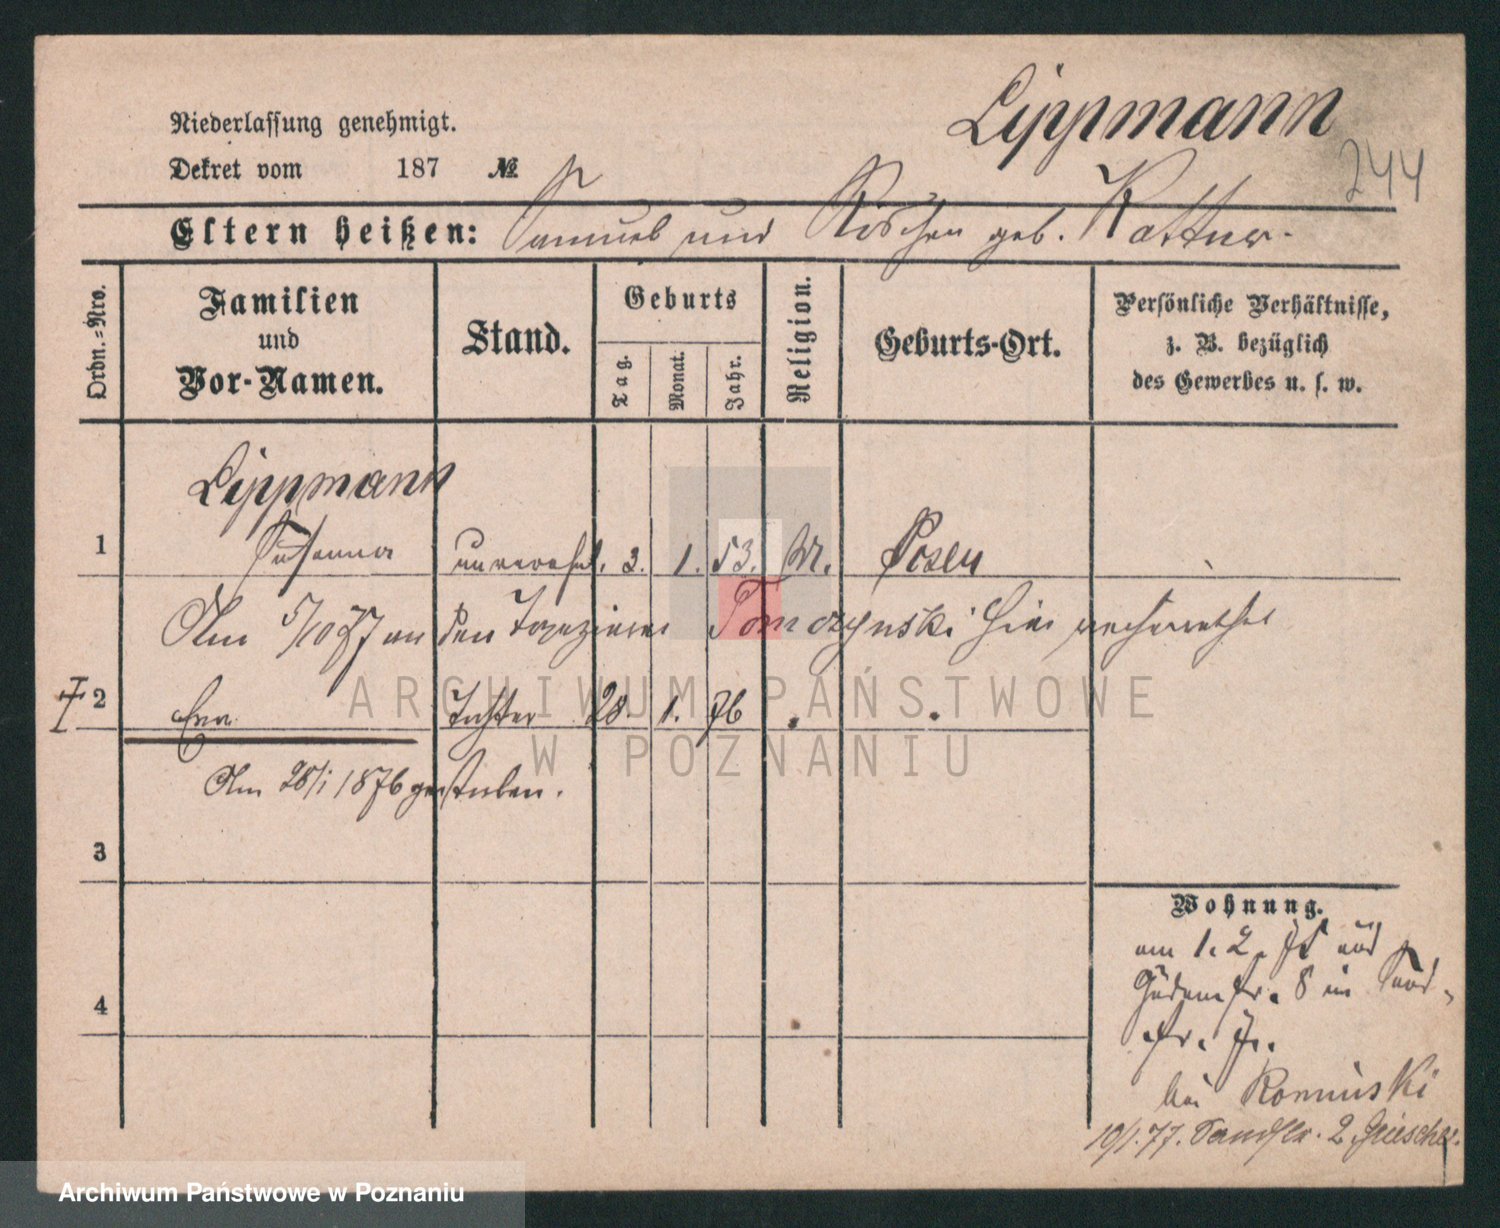 Lippmann
244
Niederlassung genehmigt.
Dekret vom 187 №
Eltern heißen: Samuel und Röschen geb. Kattner.
Ordn.-Nro.
Familien
und
Vor-Namen.
Stand.
Geburts
Tag.
Monat.
Jahr.
Religion.
Geburts-Ort.
Persönliche Verhältnisse,
z. B. bezüglich
des Gewerbes u. s. w.
Lippmann
1 Susanna unvereh. 3. 1. 53. M. Posen
Am 5/10 77 an den Tapezierer Tomczynski hier verheirathet
2 Eva Tochter 28. 1. 76
Am 28/1 1876 gestorben.
3
4
Wohnung.
am 1. 2. 75 aus
8 in
bei Rominski
10/1. 77. Sandstr. 2
ARCHIWUM PAŃSTWOWE
W POZNANIU
Archiwum Państwowe w Poznaniu